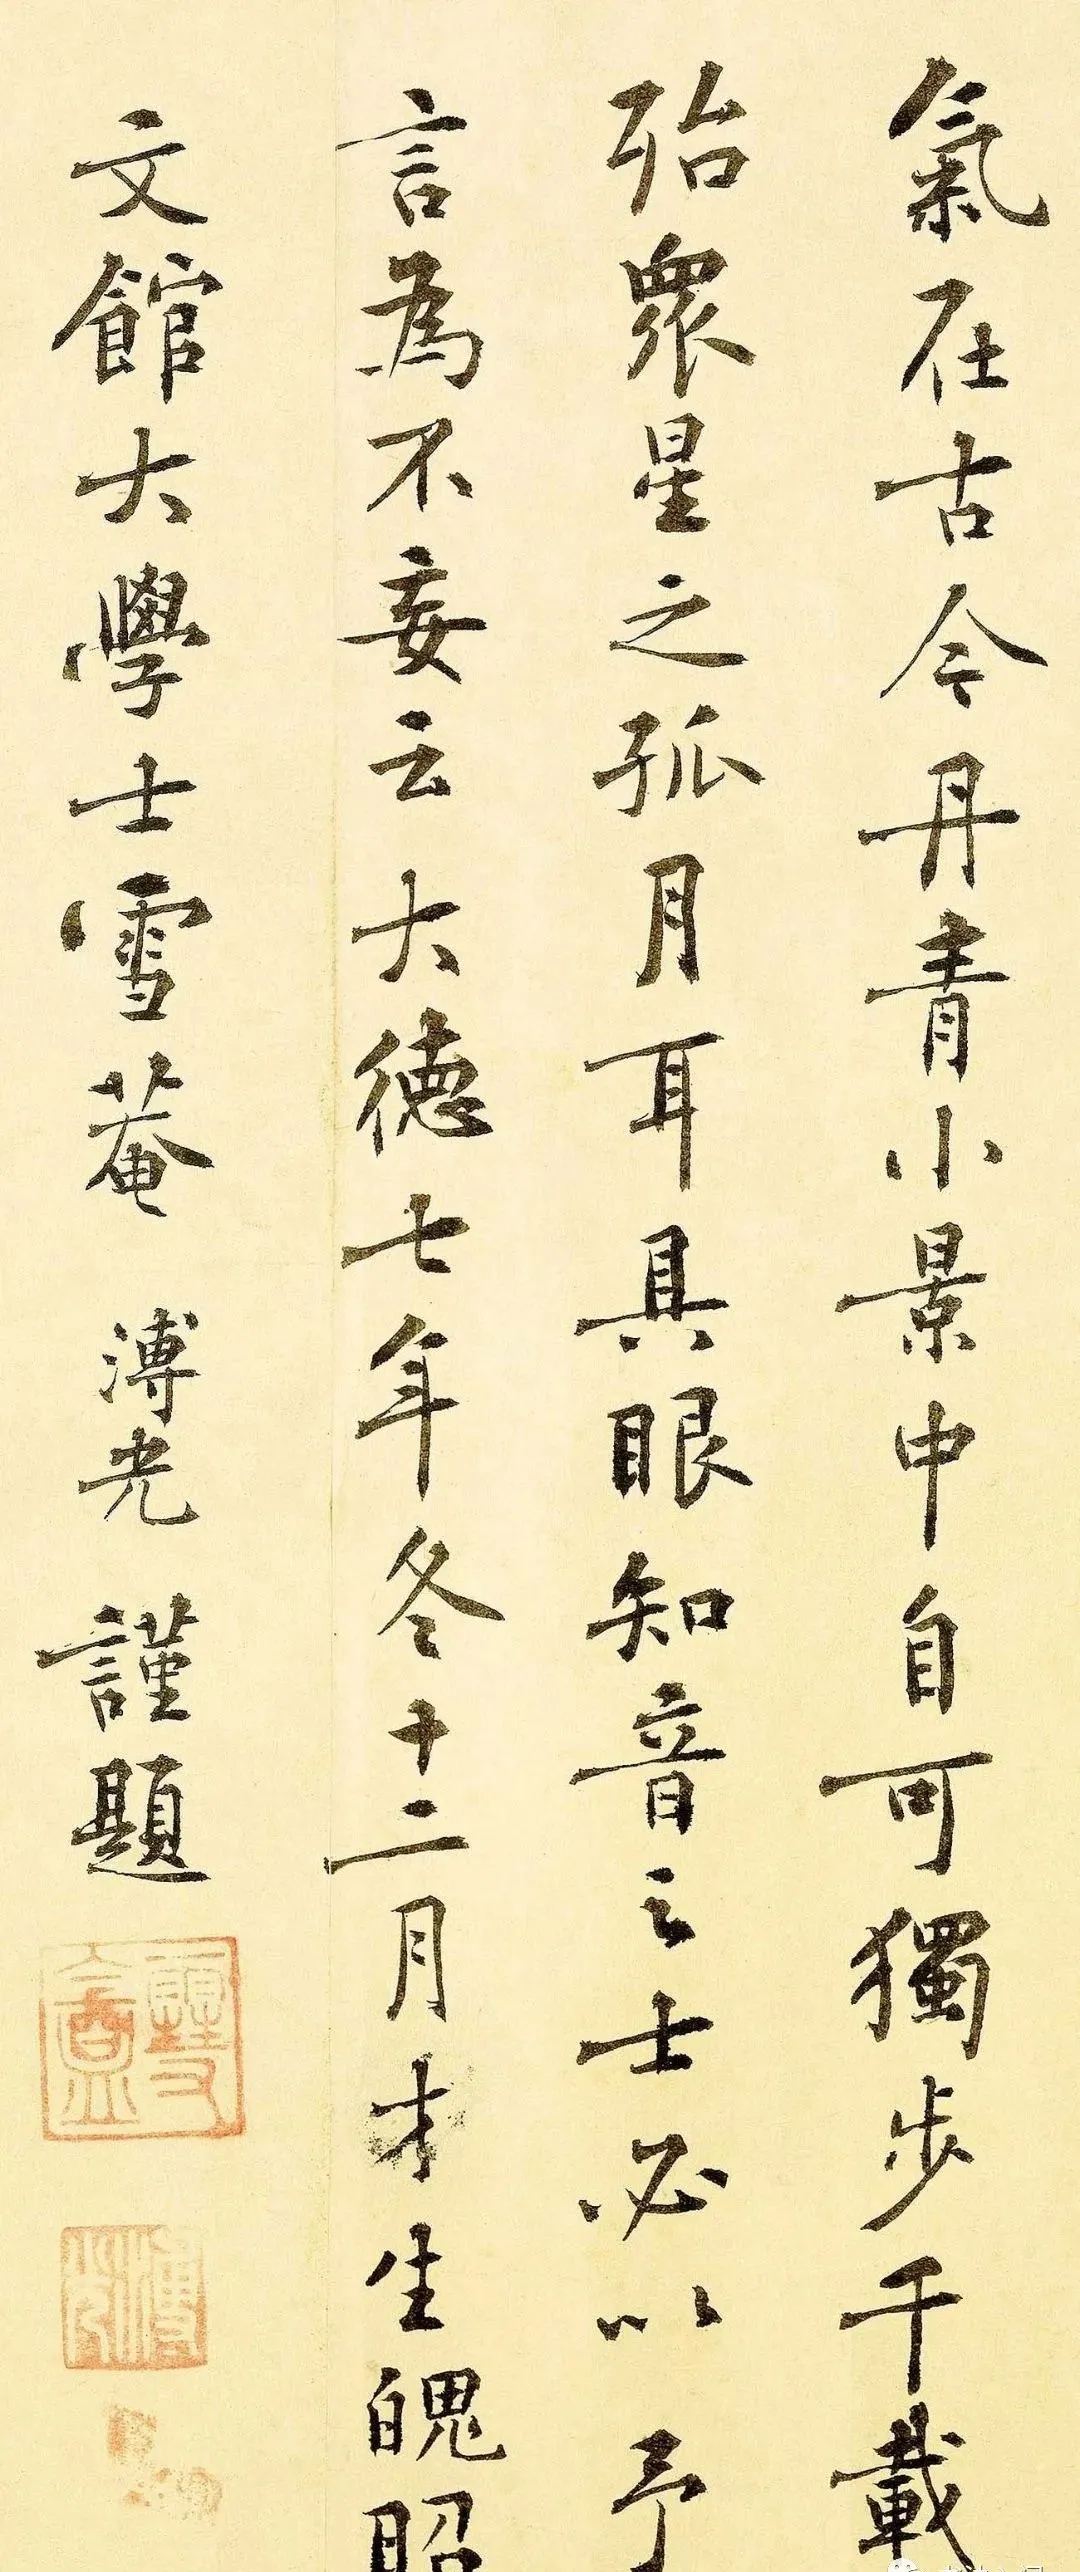 氣在古今丹青小景中自可獨步千載
殆衆星之孤月耳具眼知音之士必以予
言為不妄云大德七年冬十二月才生魄昭
文館大學士雪菴溥光謹題
溥光